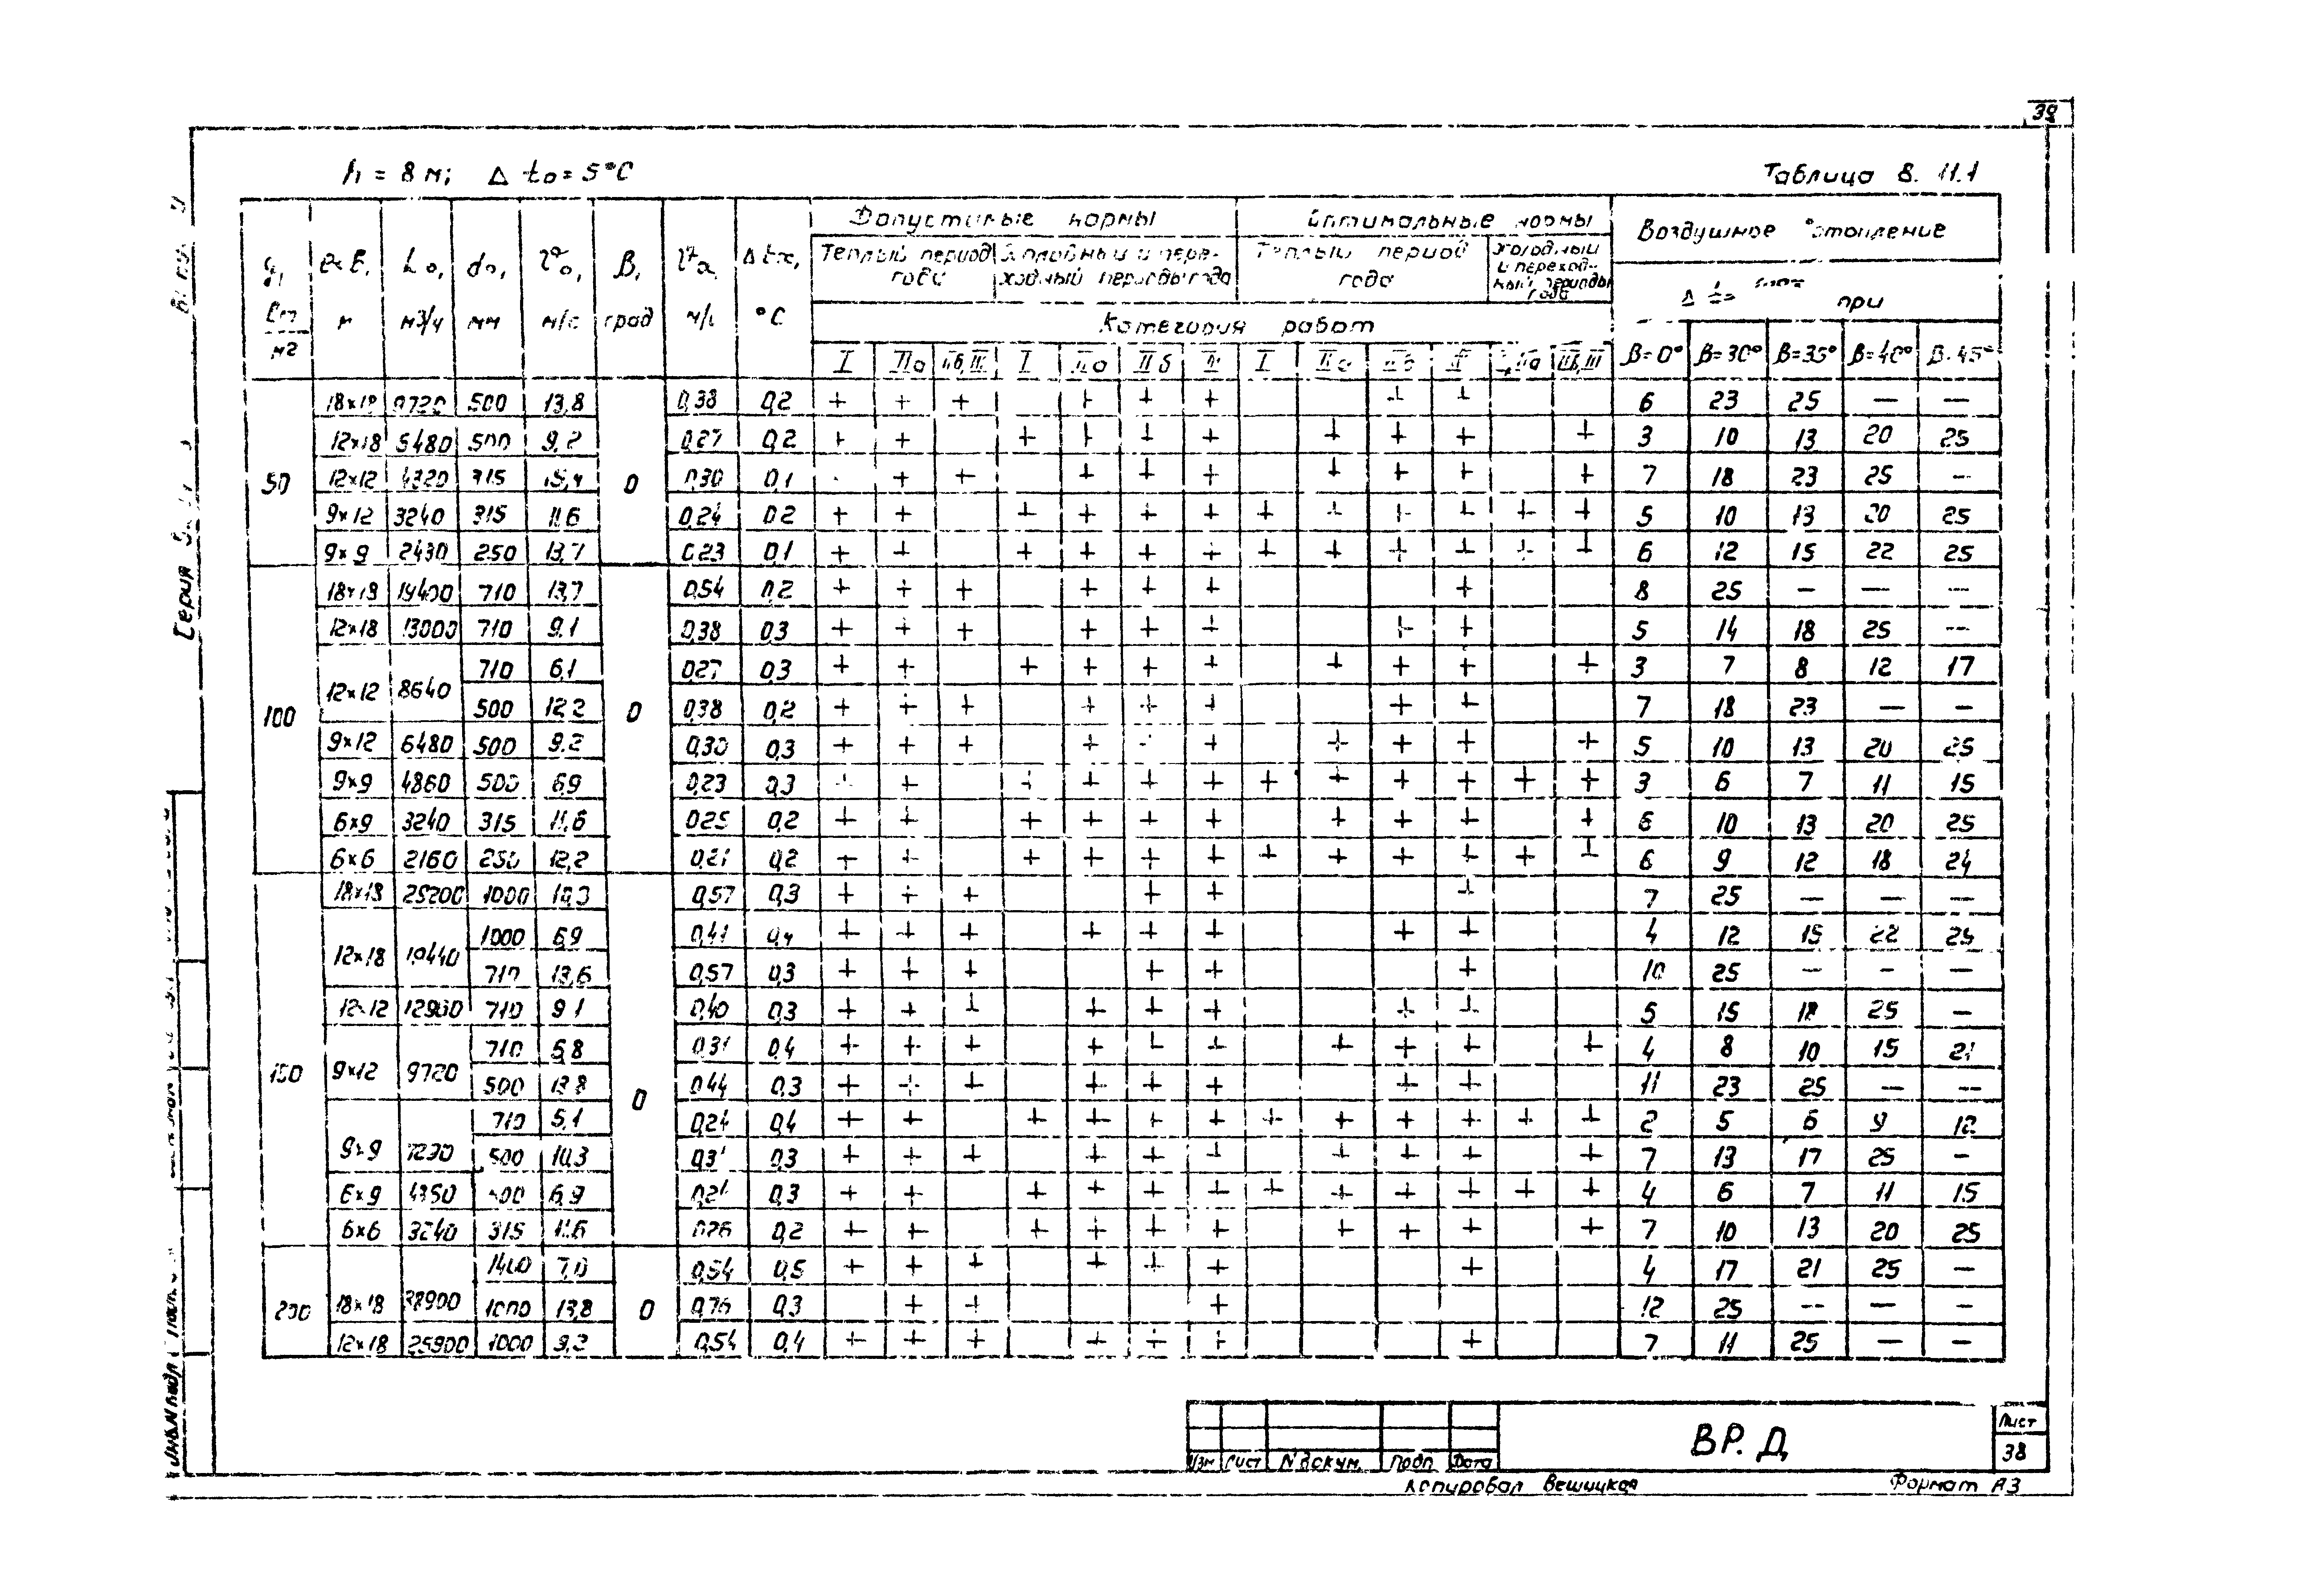 39
h = 8 м; Δ to = 5°С
Таблица 8. 11.1
q, Вт/м2 | a×b, м | Lo, м3/ч | do, мм | vo, м/с | β, град | vx, м/с | Δtx, °С | Допустимые нормы | Оптимальные нормы | Воздушное отопление
Теплый период года | Холодный и переходный периоды года | Теплый период года | Холодный и переходный периоды года | Δ t при
Категория работ
I | IIа | IIб, III | I | IIа | IIб | III | I | IIа | IIб | III | I, IIа | IIб, III | β=0° | β=30° | β=35° | β=40° | β=45°
50 | 18×18 | 9720 | 500 | 13,8 | 0 | 0,38 | 0,2 | + | + | + | | + | + | + | | | + | + | | | 6 | 23 | 25 | — | —
12×18 | 6480 | 500 | 9,2 | 0,27 | 0,2 | + | + | | + | + | + | + | | + | + | + | | + | 3 | 10 | 13 | 20 | 25
12×12 | 4320 | 315 | 15,4 | 0,30 | 0,1 | | + | + | | + | + | + | | + | + | + | | + | 7 | 18 | 23 | 25 | —
9×12 | 3240 | 315 | 11,6 | 0,24 | 0,2 | + | + | | + | + | + | + | + | + | + | + | + | + | 5 | 10 | 13 | 20 | 25
9×9 | 2430 | 250 | 13,7 | 0,23 | 0,1 | + | + | | + | + | + | + | + | + | + | + | + | + | 6 | 12 | 15 | 22 | 25
100 | 18×18 | 19400 | 710 | 13,7 | 0 | 0,54 | 0,2 | + | + | + | | + | + | + | | | | + | | | 8 | 25 | — | — | —
12×18 | 13000 | 710 | 9,1 | 0,38 | 0,3 | + | + | + | | + | + | + | | | + | + | | | 5 | 14 | 18 | 25 | —
12×12 | 8640 | 710 | 6,1 | 0,27 | 0,3 | + | + | | + | + | + | + | | + | + | + | | + | 3 | 7 | 8 | 12 | 17
500 | 12,2 | 0,38 | 0,2 | + | + | + | | + | + | + | | | + | + | | | 7 | 18 | 23 | — | —
9×12 | 6480 | 500 | 9,2 | 0,30 | 0,3 | + | + | + | | + | + | + | | + | + | + | | + | 5 | 10 | 13 | 20 | 25
9×9 | 4860 | 500 | 6,9 | 0,23 | 0,3 | + | + | | + | + | + | + | + | + | + | + | + | + | 3 | 6 | 7 | 11 | 15
6×9 | 3240 | 315 | 11,6 | 0,25 | 0,2 | + | + | | + | + | + | + | | + | + | + | | + | 6 | 10 | 13 | 20 | 25
6×6 | 2160 | 250 | 12,2 | 0,21 | 0,2 | + | + | | + | + | + | + | + | + | + | + | + | + | 6 | 9 | 12 | 18 | 24
150 | 18×18 | 29200 | 1000 | 10,3 | 0 | 0,57 | 0,3 | + | + | + | | | + | + | | | | + | | | 7 | 25 | — | — | —
12×18 | 19440 | 1000 | 6,9 | 0,41 | 0,4 | + | + | + | | + | + | + | | | + | + | | | 4 | 12 | 15 | 22 | 25
710 | 13,6 | 0,57 | 0,3 | + | + | + | | | + | + | | | | + | | | 10 | 25 | — | — | —
12×12 | 12960 | 710 | 9,1 | 0,40 | 0,3 | + | + | + | | + | + | + | | | + | + | | | 5 | 15 | 18 | 25 | —
9×12 | 9720 | 710 | 6,8 | 0,31 | 0,4 | + | + | + | | + | + | + | | + | + | + | | + | 4 | 8 | 10 | 15 | 21
500 | 13,8 | 0,44 | 0,3 | + | + | + | | + | + | + | | | + | + | | | 11 | 23 | 25 | — | —
9×9 | 7290 | 710 | 5,1 | 0,24 | 0,4 | + | + | | + | + | + | + | + | + | + | + | + | + | 2 | 5 | 6 | 9 | 12
500 | 10,3 | 0,31 | 0,3 | + | + | + | | + | + | + | | + | + | + | | + | 7 | 13 | 17 | 25 | —
6×9 | 4860 | 500 | 6,9 | 0,24 | 0,3 | + | + | | + | + | + | + | + | + | + | + | + | + | 4 | 6 | 7 | 11 | 15
6×6 | 3240 | 315 | 11,6 | 0,26 | 0,2 | + | + | | + | + | + | + | | + | + | + | | + | 7 | 10 | 13 | 20 | 25
200 | 18×18 | 38900 | 1400 | 7,0 | 0 | 0,54 | 0,5 | + | + | + | | + | + | + | | | | + | | | 4 | 17 | 21 | 25 | —
1000 | 13,8 | 0,76 | 0,3 | | + | + | | | | + | | | | | | | 12 | 25 | — | — | —
12×18 | 25900 | 1000 | 9,2 | 0,54 | 0,4 | + | + | + | | + | + | + | | | | + | | | 7 | 11 | 25 | — | —
Изм Лист N докум. Подп. Дата
ВР. Д
Лист
38
Копировал Вешицкая
Формат А3
Серия
Инв.N подл